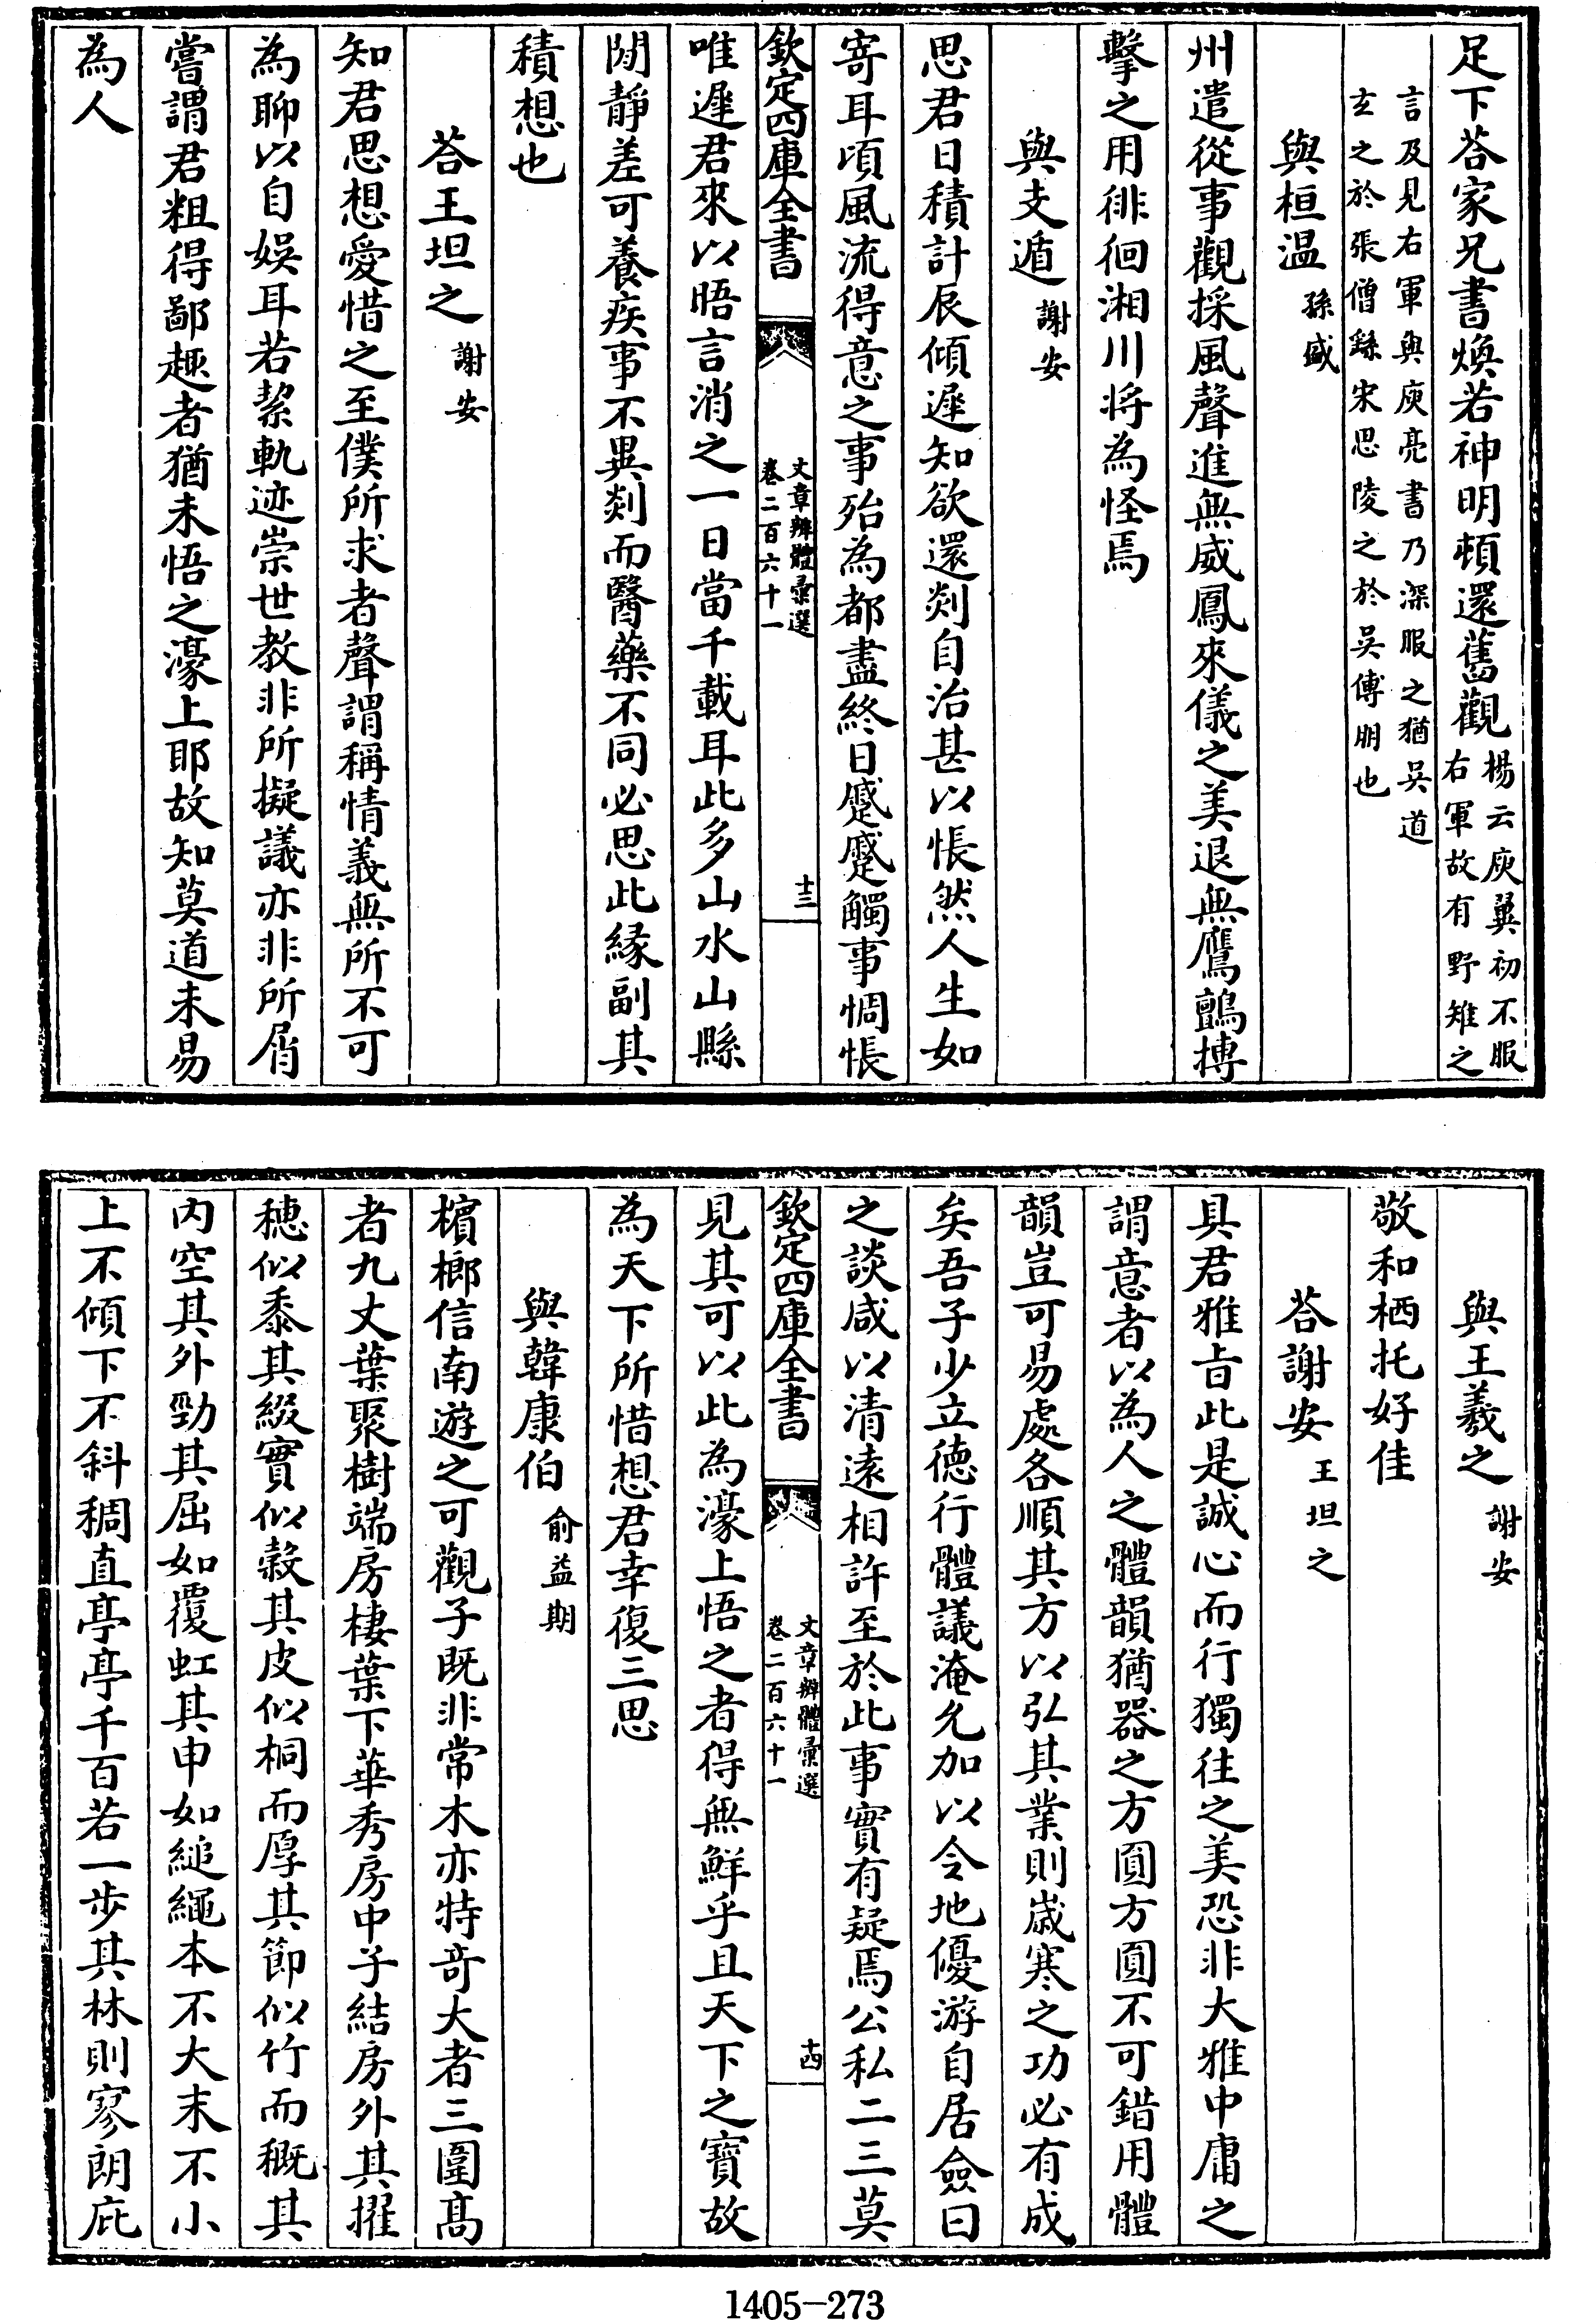 足下荅家兄書煥若神明頓還舊觀楊云庾翼初不服右軍故有野雉之
言及見右軍與庾亮書乃深服之猶吳道
𤣥之於張僧繇宋思陵之於吳傅朋也
與桓温孫盛
州遣從事觀採風聲進無威鳳來儀之美退無鷹鸇搏
擊之用徘徊湘川将為怪焉
與支遁謝安
思君日積計辰傾遲知欲還剡自治甚以悵然人生如
寄耳頃風流得意之事殆為都盡終日慼慼觸事惆悵
欽定四庫全書
文章辨體彙選
卷二百六十一
十三
唯遲君來以晤言消之一日當千載耳此多山水山縣
閒靜差可養疾事不異剡而醫藥不同必思此縁副其
積想也
荅王坦之謝安
知君思想愛惜之至僕所求者聲謂稱情義無所不可
為聊以自娛耳若絜軌迹崇世教非所擬議亦非所屑
嘗謂君粗得鄙趣者猶未悟之濠上耶故知莫逆未易
為人
與王羲之謝安
敬和栖托好佳
荅謝安王坦之
具君雅旨此是誠心而行獨往之美恐非大雅中庸之
謂意者以為人之體韻猶器之方圓方圓不可錯用體
韻豈可易處各順其方以弘其業則嵗寒之功必有成
矣吾子少立徳行體議淹允加以令地優游自居僉曰
之談咸以清逺相許至於此事實有疑焉公私二三莫
欽定四庫全書
文章辨體彙選
卷二百六十一
十四
見其可以此為濠上悟之者得無鮮乎且天下之寶故
為天下所惜想君幸復三思
與韓康伯俞益期
檳榔信南遊之可觀子既非常木亦特奇大者三圍髙
者九丈葉聚樹端房棲葉下華秀房中子結房外其擢
穗似黍其綴實似穀其皮似桐而厚其節似竹而概其
内空其外勁其屈如覆虹其申如縋繩本不大末不小
上不傾下不斜稠直亭亭千百若一步其林則寥朗庇
1405-273